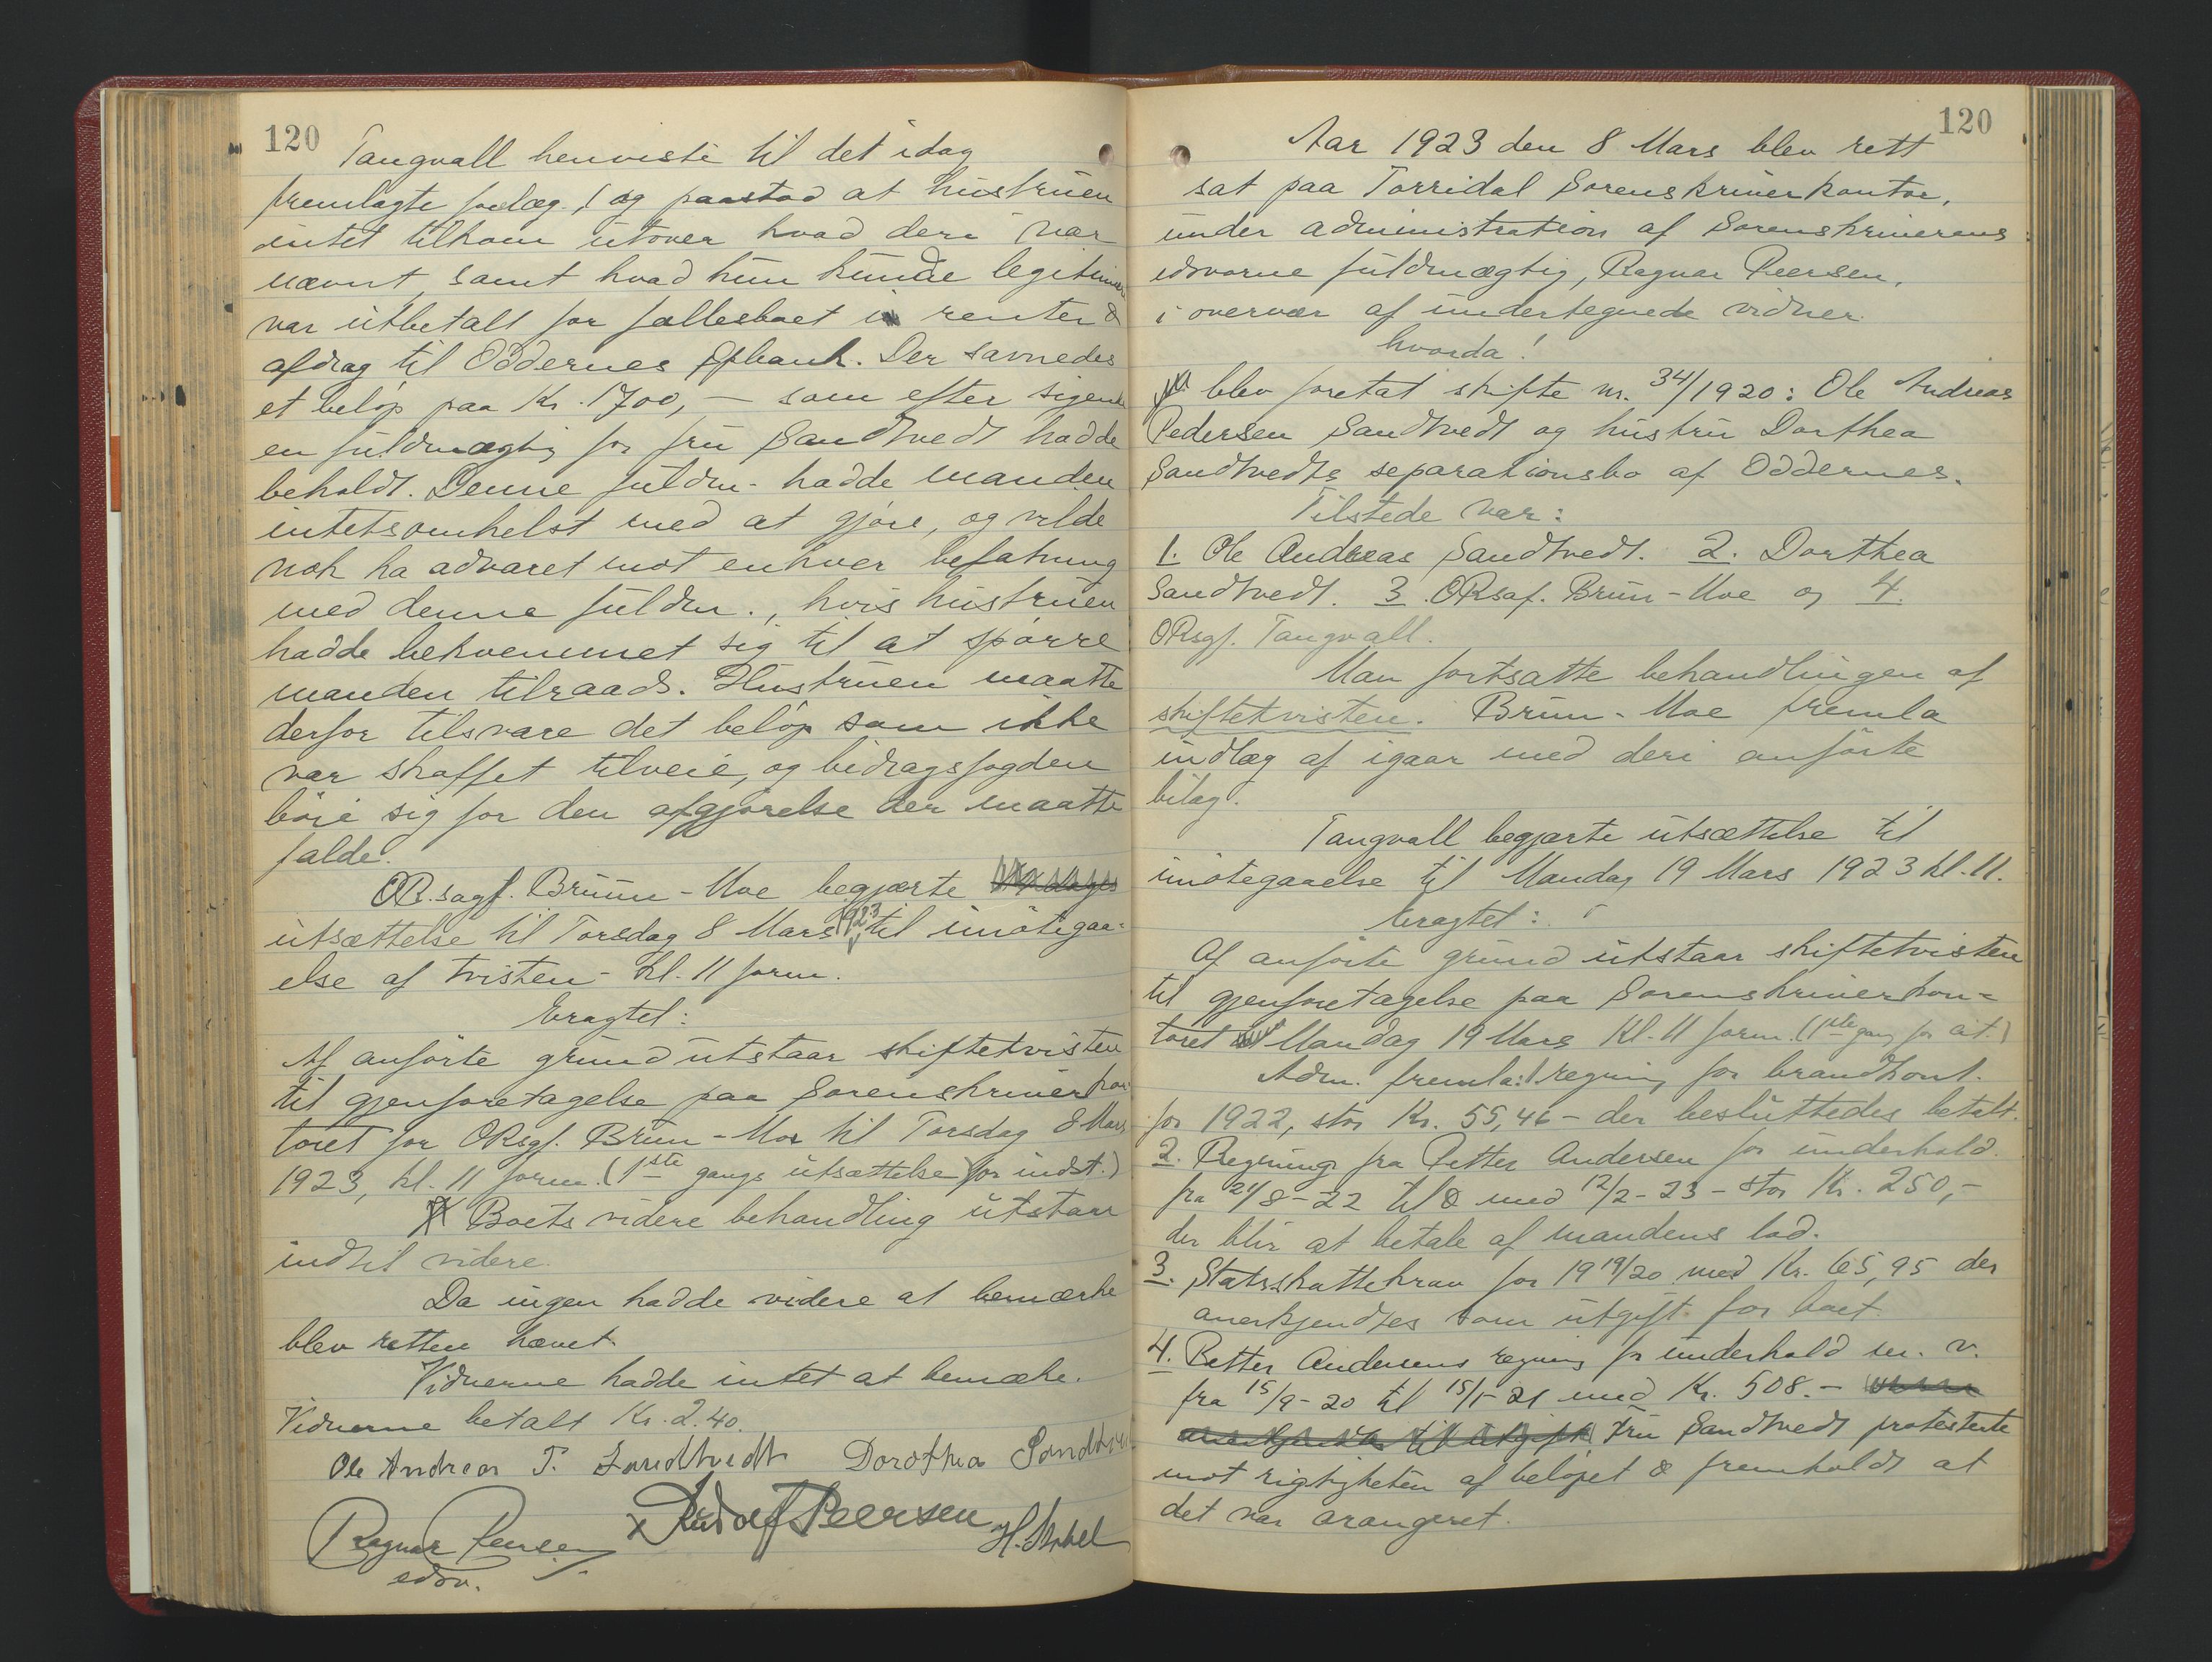 120
Tangvall henviste til det idag
fremlagte indlæg, og paastod at hustruen
intet tilkom utover hvad deri var
nævnt, samt hvad hun kunde legitimere
var utbetalt for fællesboet i renter &
afdrag til Oddernes Spbank. Der savnedes
et beløp paa Kr. 1700,- som efter sigende
en fuldmægtig for fru Sandtvedt hadde
beholdt. Denne fuldm. hadde manden
intetsomhelst med at gjøre, og vilde
nok ha advaret mot enhver befatning
med denne fuldm., hvis hustruen
hadde bekvemmet sig til at spørre
manden tilraads. Hustruen maatte
derfor tilsvare det beløp som ikke
var skaffet tilveie, og bidragsfogden
bøie sig for den afgjørelse der maatte
falde.
OR.sagf. Bruun-Moe begjærte
utsættelse til Torsdag 8 Mars 1923 til imøtegaa-
else af tvisten - kl. 11 form.
Eragtet:
Af anførte grund utstaar skiftetvisten
til gjenforetagelse paa Sorenskriverkon-
toret for ORsgf. Bruun-Moe til Torsdag 8 Mars
1923, kl. 11 form. (1ste gangs utsættelse for indst.)
Boets videre behandling utstaar
indtil videre.
Da ingen hadde videre at bemærke
blev retten hævet.
Vidnerne hadde intet at bemærke.
Vidnerne betalt Kr. 2.40.
Ole Andreas P. Sandtvedt Dorothea Sandtvedt
Ragnar Peersen Rudolf Peersen
edsv.
120
Aar 1923 den 8 Mars blev rett
sat paa Torridal Sorenskriverkontor,
under administration af Sorenskriverens
edsvorne fuldmægtig, Ragnar Peersen,
i overvær af undertegnede vidner
hvorda!
blev foretat skifte nr. 34/1920: Ole Andreas
Pedersen Sandtvedt og hustru Dorthea
Sandtvedts separationsbo af Oddernes.
Tilstede var:
1. Ole Andreas Sandtvedt. 2. Dorthea
Sandtvedt. 3. ORsaf. Bruun-Moe og 4.
ORsgf. Tangvall.
Man fortsatte behandlingen af
skiftetvisten. Bruun-Moe fremla
indlæg af igaar med deri anførte
bilag.
Tangvall begjærte utsættelse til
imøtegaaelse til Mandag 19 Mars 1923 kl. 11.
Eragtet:
Af anførte grund utstaar skiftetvisten
til gjenforetagelse paa Sorenskriverkon-
toret Mandag 19 Mars Kl. 11 form. (1ste gang for cit.)
Adm. fremla: 1 regning for brandkont.
for 1922, stor Kr. 55,46 - der besluttedes betalt.
2. Regning fra Petter Andersen for underhold
fra 21/8-22 til & med 12/2-23 - stor Kr. 250,-
der blir at betale af mandens lod.
3. Statsskattekrav for 1919/20 med Kr. 65,95 der
anerkjendtes som utgift for boet.
4. Petter Andersens regning for underhold m. v.
fra 15/9-20 til 15/1-21 med Kr. 508.-
Fru Sandtvedt protesterte
mot rigtigheten af beløpet & fremholdt at
det var arangeret.